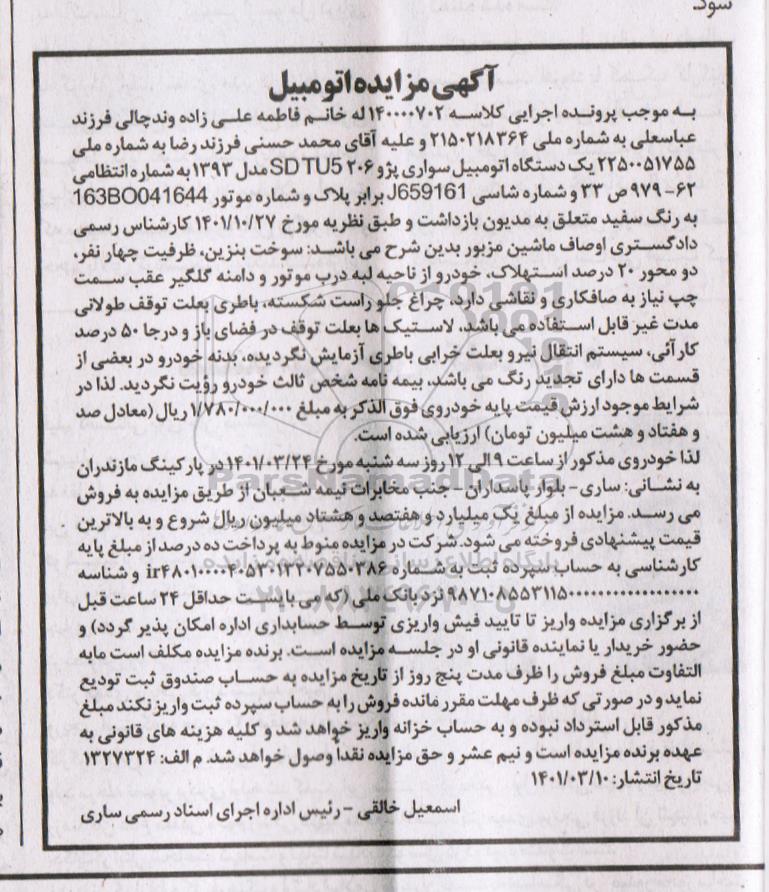 شود.
آگهی مزایده اتومبیل
به موجب پرونده اجرایی کلاسه ۱۴۰۰۰۰۷۰۲ له خانم فاطمه علی زاده وندچالی فرزند
عباسعلی به شماره ملی ۲۱۵۰۲۱۸۳۶۴ و علیه آقای محمد حسنی فرزند رضا به شماره ملی
۲۲۵۰۰۵۱۷۵۵ یک دستگاه اتومبیل سواری پژو ۲۰۶ SD TU5 مدل ۱۳۹۳ به شماره انتظامی
۶۲- ۹۷۹ص ۳۳ و شماره شاسی J659161 برابر پلاک و شماره موتور 163BO041644
به رنگ سفید متعلق به مدیون بازداشت و طبق نظریه مورخ ۱۴۰۱/۱۰/۲۷ کارشناس رسمی
دادگستری اوصاف ماشین مزبور بدین شرح می باشد: سوخت بنزین، ظرفیت چهار نفر،
دو محور ۲۰ درصد استهلاک، خودرو از ناحیه لبه درب موتور و دامنه گلگیر عقب سمت
چپ نیاز به صافکاری و نقاشی دارد، چراغ جلو راست شکسته، باطری بعلت توقف طولانی
مدت غیر قابل استفاده می باشد، لاستیک ها بعلت توقف در فضای باز و درجا ۵۰ درصد
کارآئی، سیستم انتقال نیرو بعلت خرابی باطری آزمایش نگردیده، بدنه خودرو در بعضی از
قسمت ها دارای تجدید رنگ می باشد، بیمه نامه شخص ثالث خودرو رؤیت نگردید. لذا در
شرایط موجود ارزش قیمت پایه خودروی فوق الذکر به مبلغ ۱/۷۸۰/۰۰۰/۰۰۰ ریال (معادل صد
و هفتاد و هشت میلیون تومان) ارزیابی شده است.
لذا خودروی مذکور از ساعت ۹ الی ۱۲ روز سه شنبه مورخ ۱۴۰۱/۰۳/۲۴ در پارکینگ مازندران
به نشانی: ساری - بلوار پاسداران - جنب مخابرات نیمه شعبان از طریق مزایده به فروش
می رسد. مزایده از مبلغ یک میلیارد و هفتصد و هشتاد میلیون ریال شروع و به بالاترین
قیمت پیشنهادی فروخته می شود. شرکت در مزایده منوط به پرداخت ده درصد از مبلغ پایه
کارشناسی به حساب سپرده ثبت به شماره و شناسه
نزد بانک ملی (که می بایست حداقل ۲۴ ساعت قبل
از برگزاری مزایده واریز تا تایید فیش واریزی توسط حسابداری اداره امکان پذیر گردد) و
حضور خریدار یا نماینده قانونی او در جلسه مزایده است. برنده مزایده مکلف است مابه
التفاوت مبلغ فروش را ظرف مدت پنج روز از تاریخ مزایده به حساب صندوق ثبت تودیع
نماید و در صورتی که ظرف مهلت مقرر مانده فروش را به حساب سپرده ثبت واریز نکند مبلغ
مذکور قابل استرداد نبوده و به حساب خزانه واریز خواهد شد و کلیه هزینه های قانونی به
عهده برنده مزایده است و نیم عشر و حق مزایده نقدا وصول خواهد شد. م الف: ۱۳۲۷۳۲۴
تاریخ انتشار: ۱۴۰۱/۰۳/۱۰
اسمعیل خالقی - رئیس اداره اجرای اسناد رسمی ساری
ParsNamadData